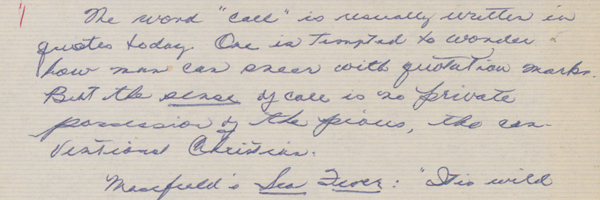 The word "call" is usually written in
quotes today. One is tempted to wonder
how man can sneer with quotation marks.
But the sense of call is no private
possession of the pious, the con-
ventional Christian.
Masefield's Sea Fever: "It is wild